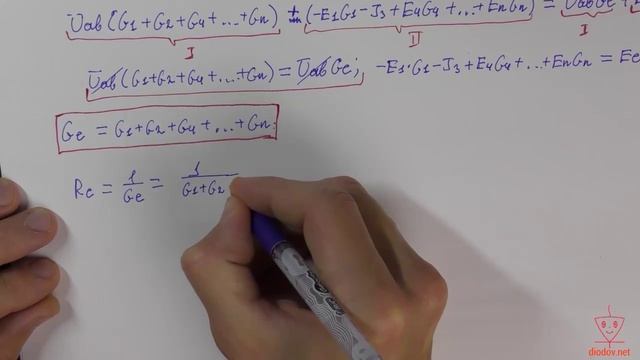 Uab(G1+G2+G4+...+Gn) + (-E1G1-J3+E4G4+...+EnGn) = UabGe
I II I
Uab(G1+G2+G4+...+Gn) = UabGe; -E1·G1-J3+E4G4+...+EnGn = Ee
Ge = G1+G2+G4+...+Gn.
Re = 1/Ge = 1/G1+G2
diodov.net